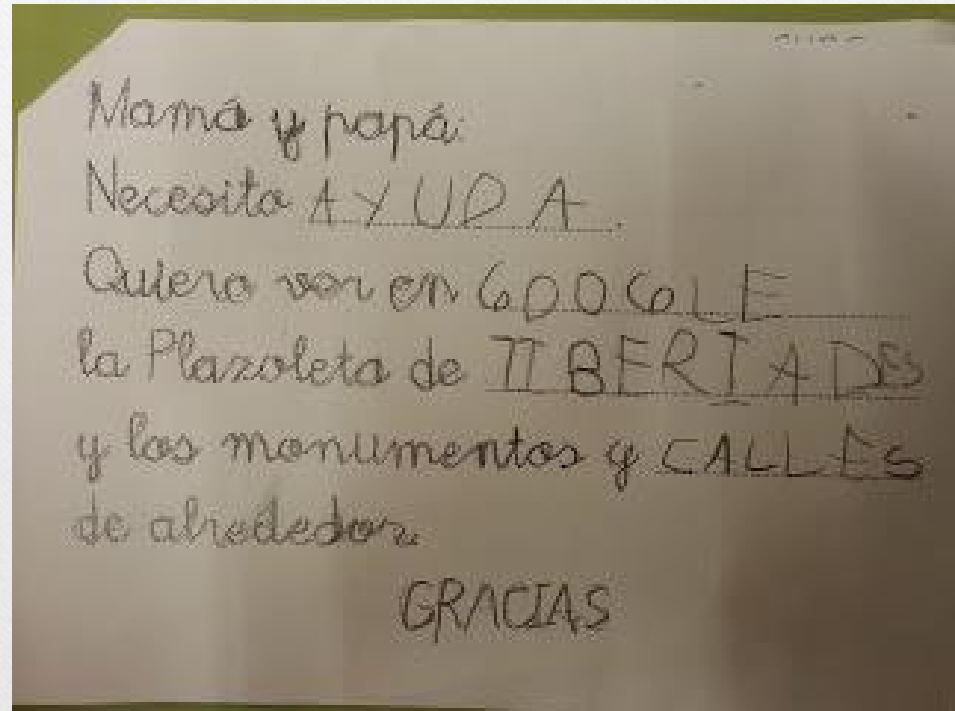 Mamá y papá:
Necesito AYUDA.
Quiero ver en GOOGLE
la Plazoleta de TIBERIADES
y los monumentos y CALLES
de alrededor.
GRACIAS